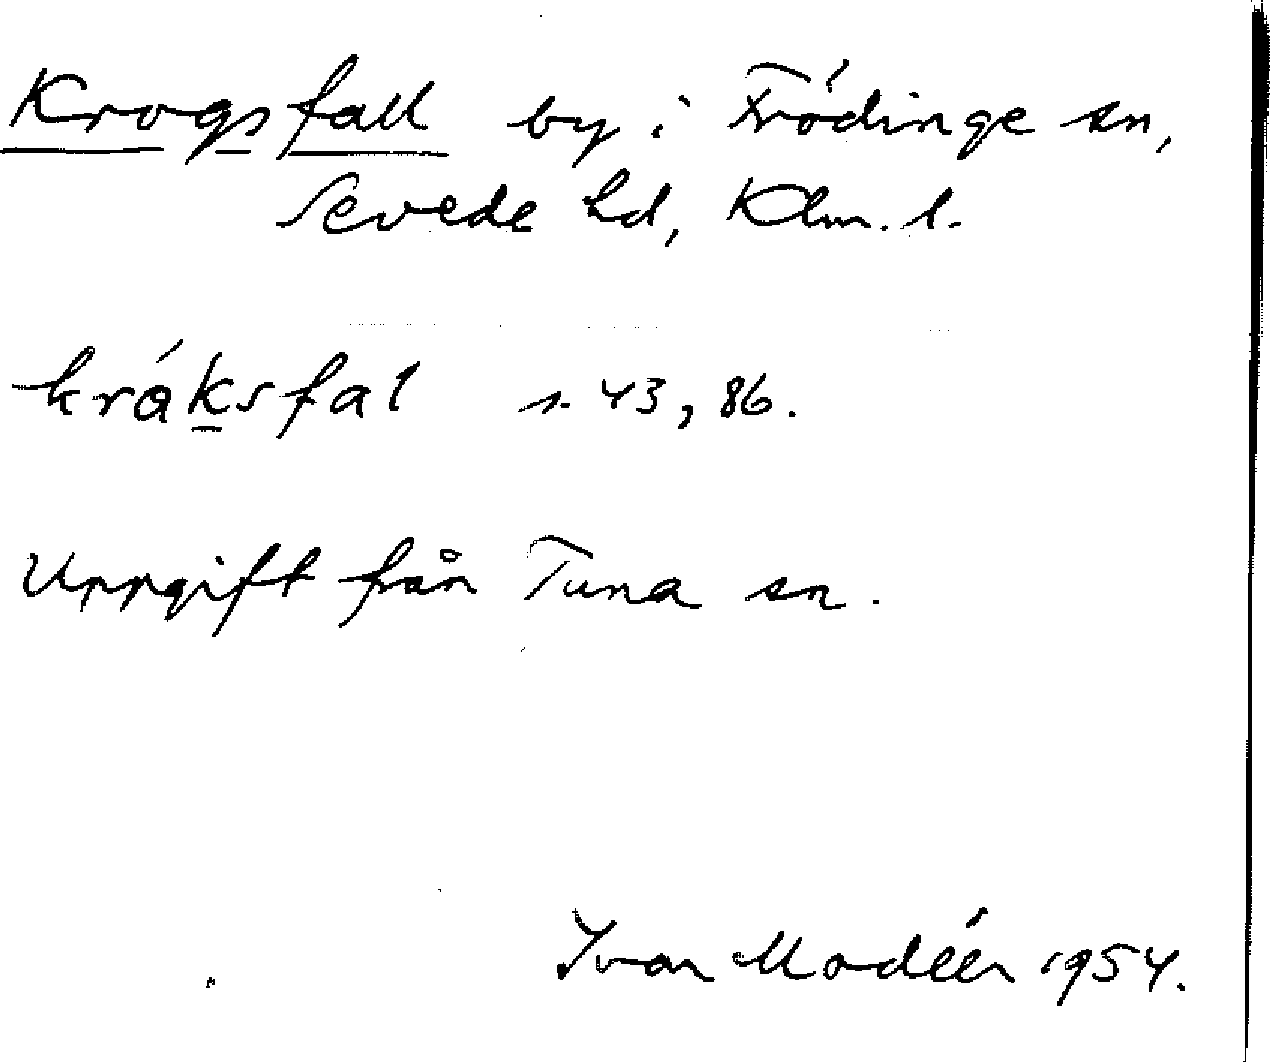 Krogsfall by i Frödinge sn,
Sevede hd, Klm. l.
kráksfal s. 43, 86.
Uppgift från Tuna sn.
Ivar Modéer 1954.